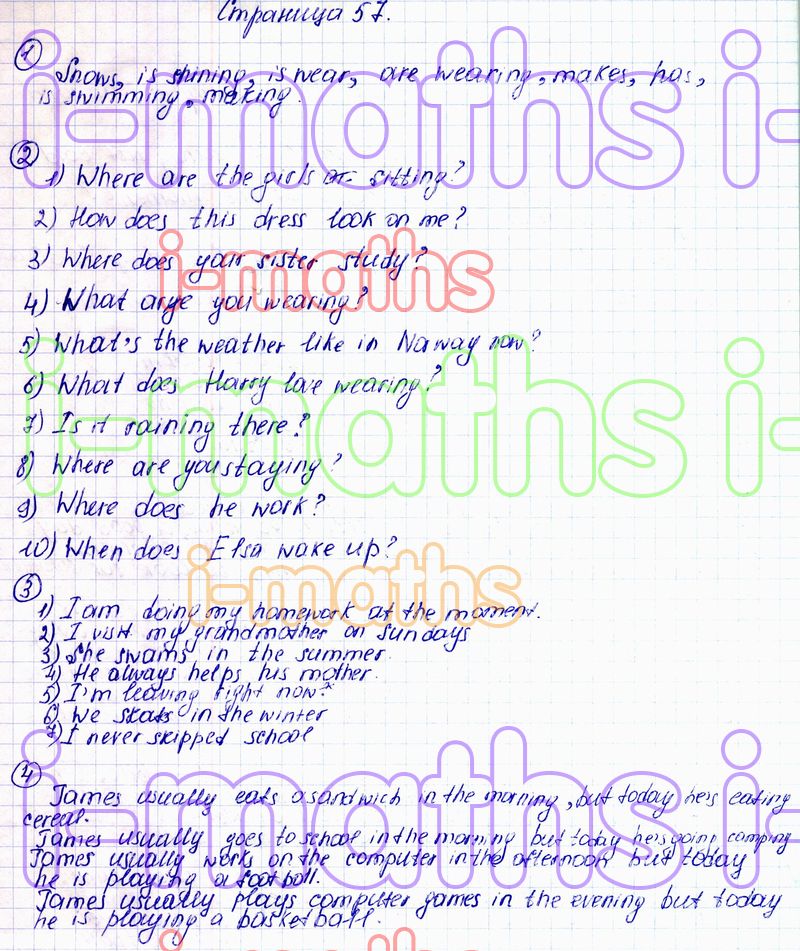 Страница 57.
1
Snows, is shining, is wear, are wearing, makes, has,
is swimming, making.
i-maths i-
2
1) Where are the girls sitting?
2) How does this dress look on me?
i-maths
3) Where does your sister study?
4) What are you wearing?
5) What's the weather like in Naway now?
6) What does Harry love wearing?
i-maths i-
7) Is it raining there?
8) Where are you staying?
9) Where does he work?
10) When does Elsa wake up?
i-maths
3
1) I am doing my homework at the moment.
2) I visit my grandmother on sundays
3) She swams in the summer.
4) He always helps his mother.
5) I'm leaving right now.
6) We skats in the winter
7) I never skipped school
i-maths i-
4
James usually eats a sandwich in the morning, but today he's eating
cereal.
James usually goes to school in the morning but today he is going camping
James usually works on the computer in the afternoon but today
he is playing a football.
James usually plays computer games in the evening but today
he is playing a basketball.